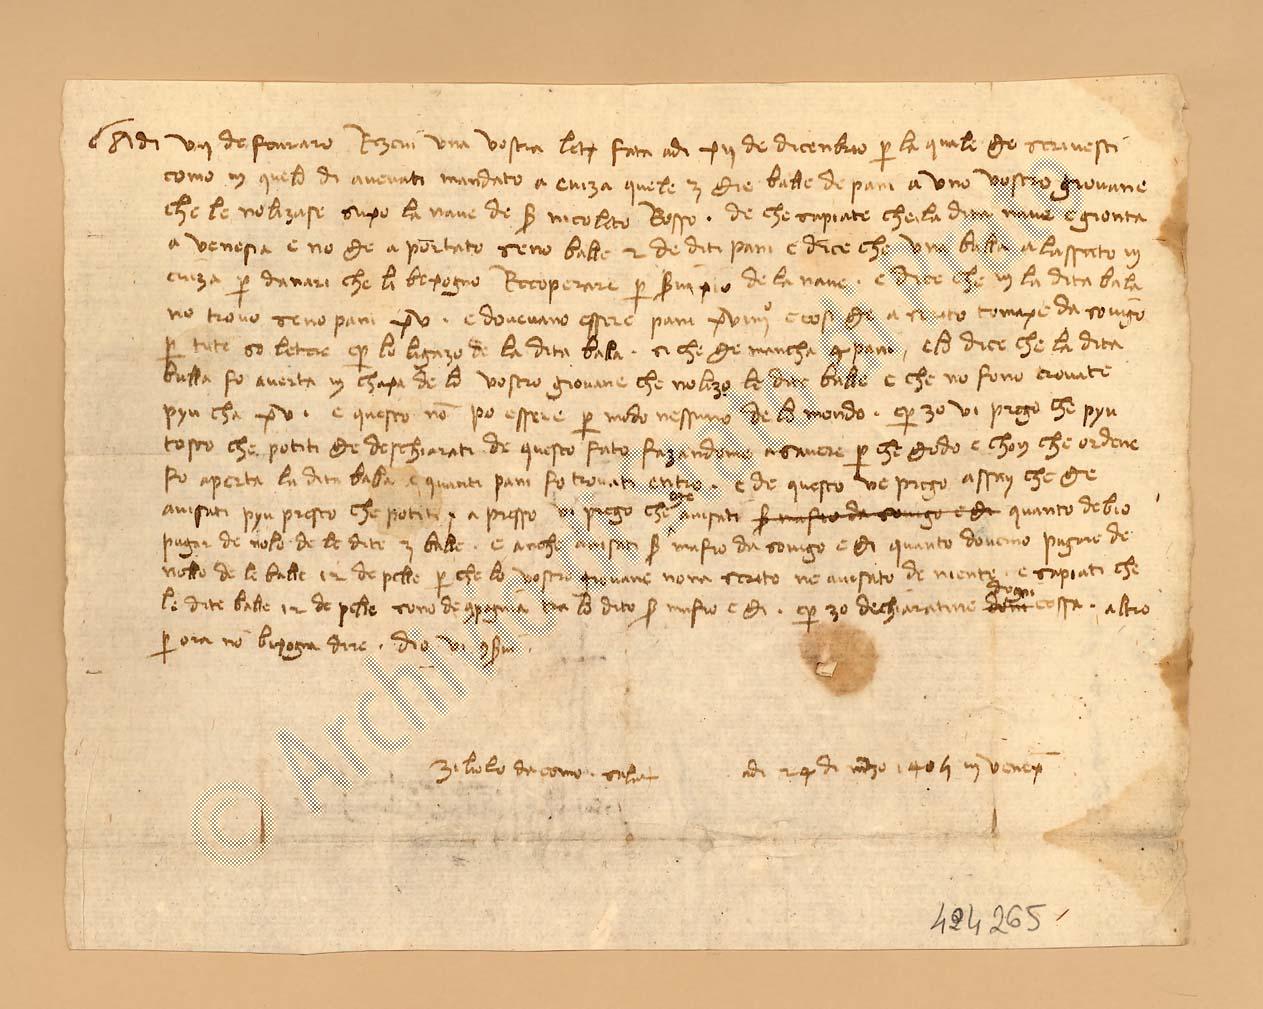 Adi vij de fevraro Rezevi una vostra letr fata adi xij de dicenbrio p la quale ge scrivesti
como in quelo di avevati mandato a eviza quele 3 gie balle de pani a uno vostro giovane
che le nolizase supo la nave de S nicoleto Rosso . de che sapiate che la dita nave e gionta
a venesia e no ge a portato seno balle 2 de diti pani e dice che una balla a lassato in
eviza p danari che li bexogno Recoperare p de la nave . e dice che in la dita bala
no trovo seno pani xv . e dovevano essere pani e cosi ge a scrito tomaxe da
p tute so letere e p lo ligazo de la dita balla . si che ge mancha 4 pani , e lo dice che la dita
balla fo averta in chaxa de lo vostro giovane che nolizo le dite balle e che no fono trovate
pyu cha xv . e questo no po essere p modo nessuno de lo mondo . e p zo vi prego che pyu
tosto che potiti ge deschiarati de questo fato fazandome asavere p che modo e chon che ordene
fo aperta la dita balla e quanti pani fo trovati entro . e de questo ve prego assay che ge
avisati pyu presto che potiti . a presso vi prego che avisati quanto debio
pagar de nolo de le dite 3 balle . e anche avisati S e di quanto dovemo pagare de
nollo de le balle 12 de pelle p che lo vostro giovane non a scrito ne avisato de niente . e sapiati che
le dite balle 12 de pelle sono de conpagnia tra lo dito S e di . e p zo dechiaratime d ogni cossa . altro
p ora no bixogna dire . dio vi
Ziliolo da como . salut
adi 24 di marzo 1405 in venex
424265
© Archivio di Stato di Prato